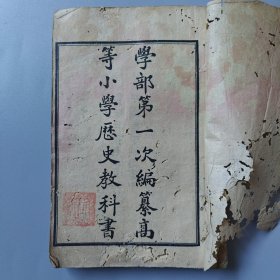 學部第一次編纂高
等小學歷史教科書